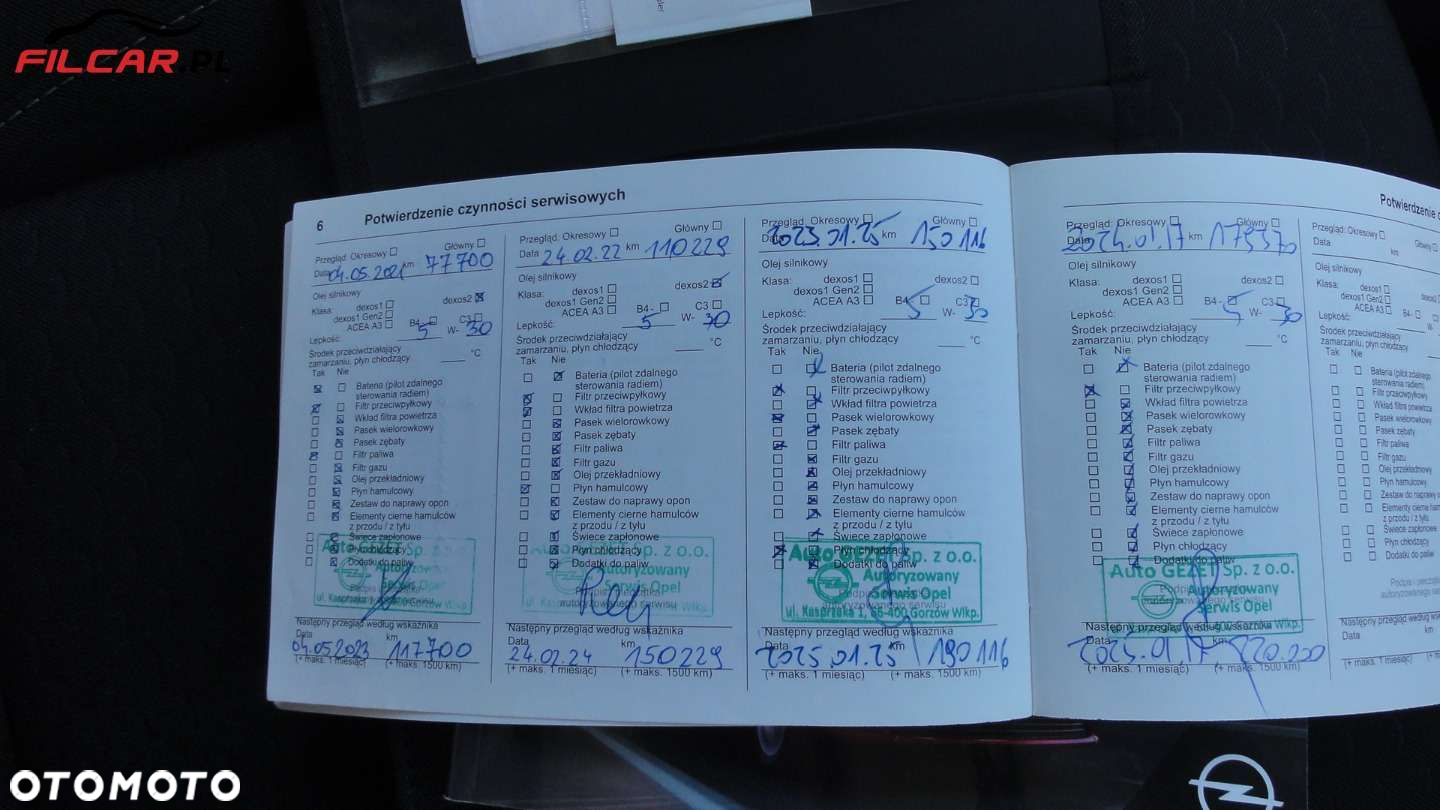 FILCAR.PL
6 Potwierdzenie czynności serwisowych
Przegląd: Okresowy Główny
Data 04.05.2021 km 77700
Olej silnikowy
Klasa: dexos1 dexos2
dexos1 Gen2
ACEA A3 B4- C3
Lepkość: 5 W- 30
Środek przeciwdziałający
zamarzaniu, płyn chłodzący °C
Tak Nie
Bateria (pilot zdalnego
sterowania radiem)
Filtr przeciwpyłkowy
Wkład filtra powietrza
Pasek wielorowkowy
Pasek zębaty
Filtr paliwa
Filtr gazu
Olej przekładniowy
Płyn hamulcowy
Zestaw do naprawy opon
Elementy cierne hamulców
z przodu / z tyłu
Świece zapłonowe
Płyn chłodzący
Dodatki do paliw
Auto GEZET Sp. z o.o.
Autoryzowany
Serwis Opel
ul. Kasprzaka 1, 66-400 Gorzów Wlkp.
Następny przegląd według wskaźnika
Data km
04.05.2023 117700
(+ maks. 1 miesiąc) (+ maks. 1500 km)
Przegląd: Okresowy Główny
Data 24.02.22 km 110229
Olej silnikowy
Klasa: dexos1 dexos2
dexos1 Gen2
ACEA A3 B4- C3
Lepkość: 5 W- 30
Środek przeciwdziałający
zamarzaniu, płyn chłodzący °C
Tak Nie
Bateria (pilot zdalnego
sterowania radiem)
Filtr przeciwpyłkowy
Wkład filtra powietrza
Pasek wielorowkowy
Pasek zębaty
Filtr paliwa
Filtr gazu
Olej przekładniowy
Płyn hamulcowy
Zestaw do naprawy opon
Elementy cierne hamulców
z przodu / z tyłu
Świece zapłonowe
Płyn chłodzący
Dodatki do paliw
Sp. z o.o.
Autoryzowany
Serwis Opel
autoryzowanego serwisu
Następny przegląd według wskaźnika
Data km
24.02.24 150229
(+ maks. 1 miesiąc) (+ maks. 1500 km)
Przegląd: Okresowy Główny
Data 2023.01.25 km 150116
Olej silnikowy
Klasa: dexos1 dexos2
dexos1 Gen2
ACEA A3 B4- C3
Lepkość: 5 W- 30
Środek przeciwdziałający
zamarzaniu, płyn chłodzący °C
Tak Nie
Bateria (pilot zdalnego
sterowania radiem)
Filtr przeciwpyłkowy
Wkład filtra powietrza
Pasek wielorowkowy
Pasek zębaty
Filtr paliwa
Filtr gazu
Olej przekładniowy
Płyn hamulcowy
Zestaw do naprawy opon
Elementy cierne hamulców
z przodu / z tyłu
Świece zapłonowe
Płyn chłodzący
Dodatki do paliw
Auto GEZET Sp. z o.o.
Autoryzowany
Serwis Opel
ul. Kasprzaka 1, 66-400 Gorzów Wlkp.
Następny przegląd według wskaźnika
Data km
2025.01.25 190116
(+ maks. 1 miesiąc) (+ maks. 1500 km)
Potwierdzenie
Przegląd: Okresowy Główny
Data 2024.01.17 km 179370
Olej silnikowy
Klasa: dexos1 dexos2
dexos1 Gen2
ACEA A3 B4- C3
Lepkość: 5 W- 30
Środek przeciwdziałający
zamarzaniu, płyn chłodzący °C
Tak Nie
Bateria (pilot zdalnego
sterowania radiem)
Filtr przeciwpyłkowy
Wkład filtra powietrza
Pasek wielorowkowy
Pasek zębaty
Filtr paliwa
Filtr gazu
Olej przekładniowy
Płyn hamulcowy
Zestaw do naprawy opon
Elementy cierne hamulców
z przodu / z tyłu
Świece zapłonowe
Płyn chłodzący
Dodatki do paliw
Auto GEZET Sp. z o.o.
Autoryzowany
Serwis Opel
Następny przegląd według wskaźnika
Data km
(+ maks. 1 miesiąc) (+ maks. 1500 km)
Przegląd: Okresowy Główny
Data km
Olej silnikowy
Klasa: dexos1
dexos1 Gen2
ACEA A3 B4-
Lepkość:
Środek przeciwdziałający
zamarzaniu, płyn chłodzący
Tak Nie
Bateria (pilot zdalnego
sterowania radiem)
Filtr przeciwpyłkowy
Wkład filtra powietrza
Pasek wielorowkowy
Pasek zębaty
Filtr paliwa
Filtr gazu
Olej przekładniowy
Płyn hamulcowy
Zestaw do naprawy
Elementy cierne
z przodu / z tyłu
Świece zapłonowe
Płyn chłodzący
Dodatki do paliw
Następny przegląd według
Data km
(+ maks. 1 miesiąc)
OTOMOTO